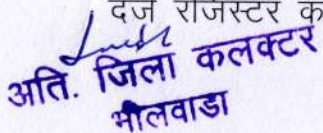 दर्ज रजिस्टर क
अति. जिला कलक्टर
भीलवाडा